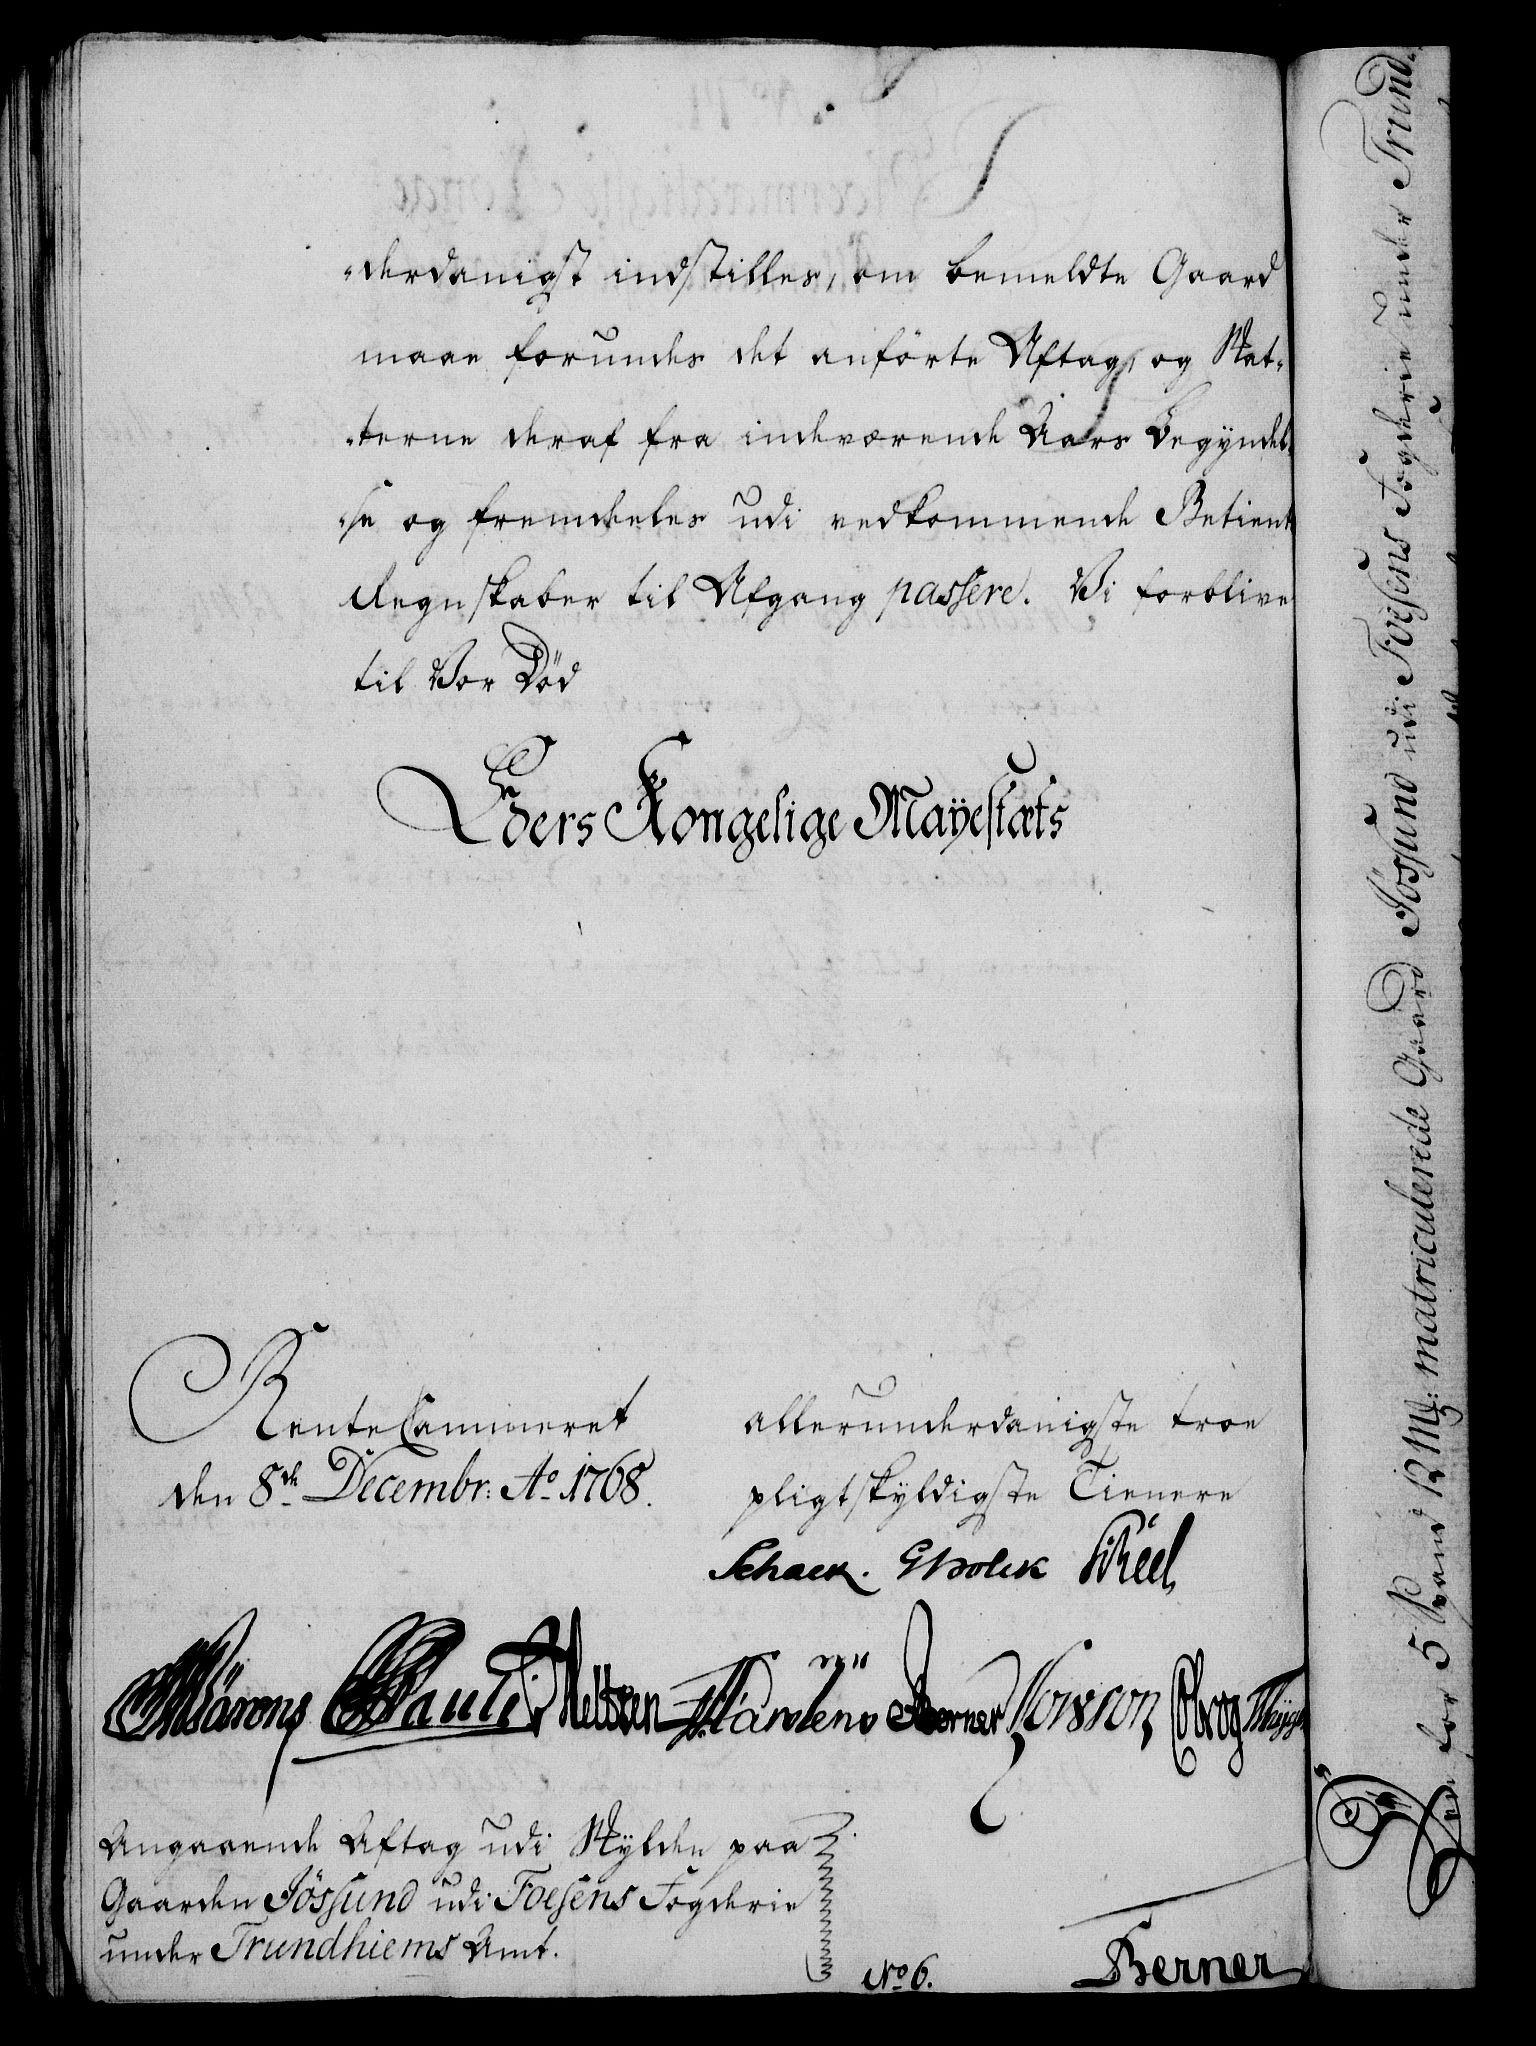 -derdanigst indstilles, om bemeldte Gaard
maae forundes det anförte Aftag, og Skat-
-terne deraf fra indeværende Aars Begÿndel-
-se og fremdeeles udi vedkommende Betients
Regnskaber til Afgang passere. Vi forblive
til Vor Död
Eders Kongelige Mayestæts
RenteCammeret
den 8de Decembr: Ao 1768.
allerunderdanigste troe
pligtskÿldigste Tienere
Schack. GHolck SchReel
Pauli Meltzen Berner Cbrog
Angaaende Aftag udi Skÿlden paa
Gaarden Jössund udi Foesens Fogderie
under Trundhiems Amt.
No 6. Berner
Den for 5 Spand 12 Mk: matriculerede Gaard Jössund udi Foesens Fogderie under Trund-